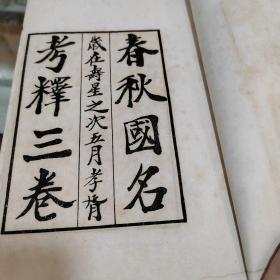 春秋國名
歲在壽星之次五月孝胥
考釋三卷